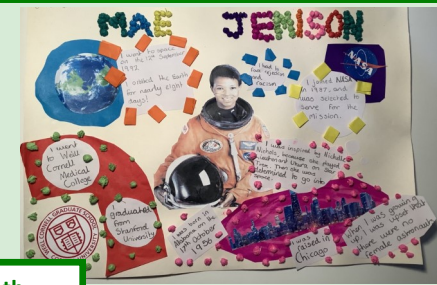 MAE JEMISON
I went to space
on the 12th September
1992.
I orbited the Earth
for nearly eight
days!
I had to
face rejection
and
racism
NASA
I joined NASA
in 1987, and
was selected to
serve for the
mission.
I went
to Weill
Cornell
Medical
College
I
graduated
from
Stanford
University
I was born in
Alabama on the
17th October
1956
I was inspired by Nichelle
Nichols, because she played
Lieutenant Uhura on Star
Trek. Then she was
determined to go into
Space
I was
raised in
Chicago
When I was growing
up, I was upset
there were no
female astronauts